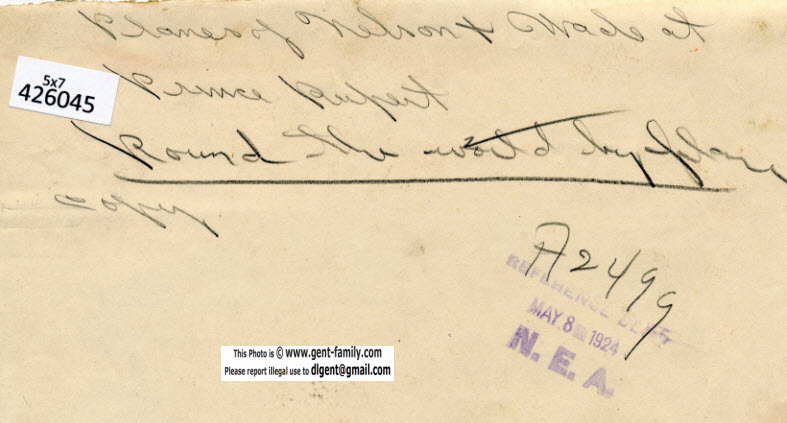 Planes of Nelson & Wade at
Prince Rupert
Round the world by plane
copy
5x7
426045
A2499
REFERENCE DEPT.
MAY 8 1924
N. E. A.
This Photo is © www.gent-family.com
Please report illegal use to dlgent@gmail.com